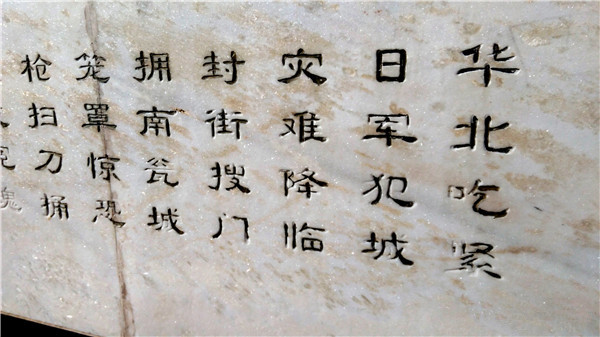 华北吃紧
日军犯城
灾难降临
封街搜门
拥南瓮城
笼罩惊恐
枪扫刀捅
冤魂